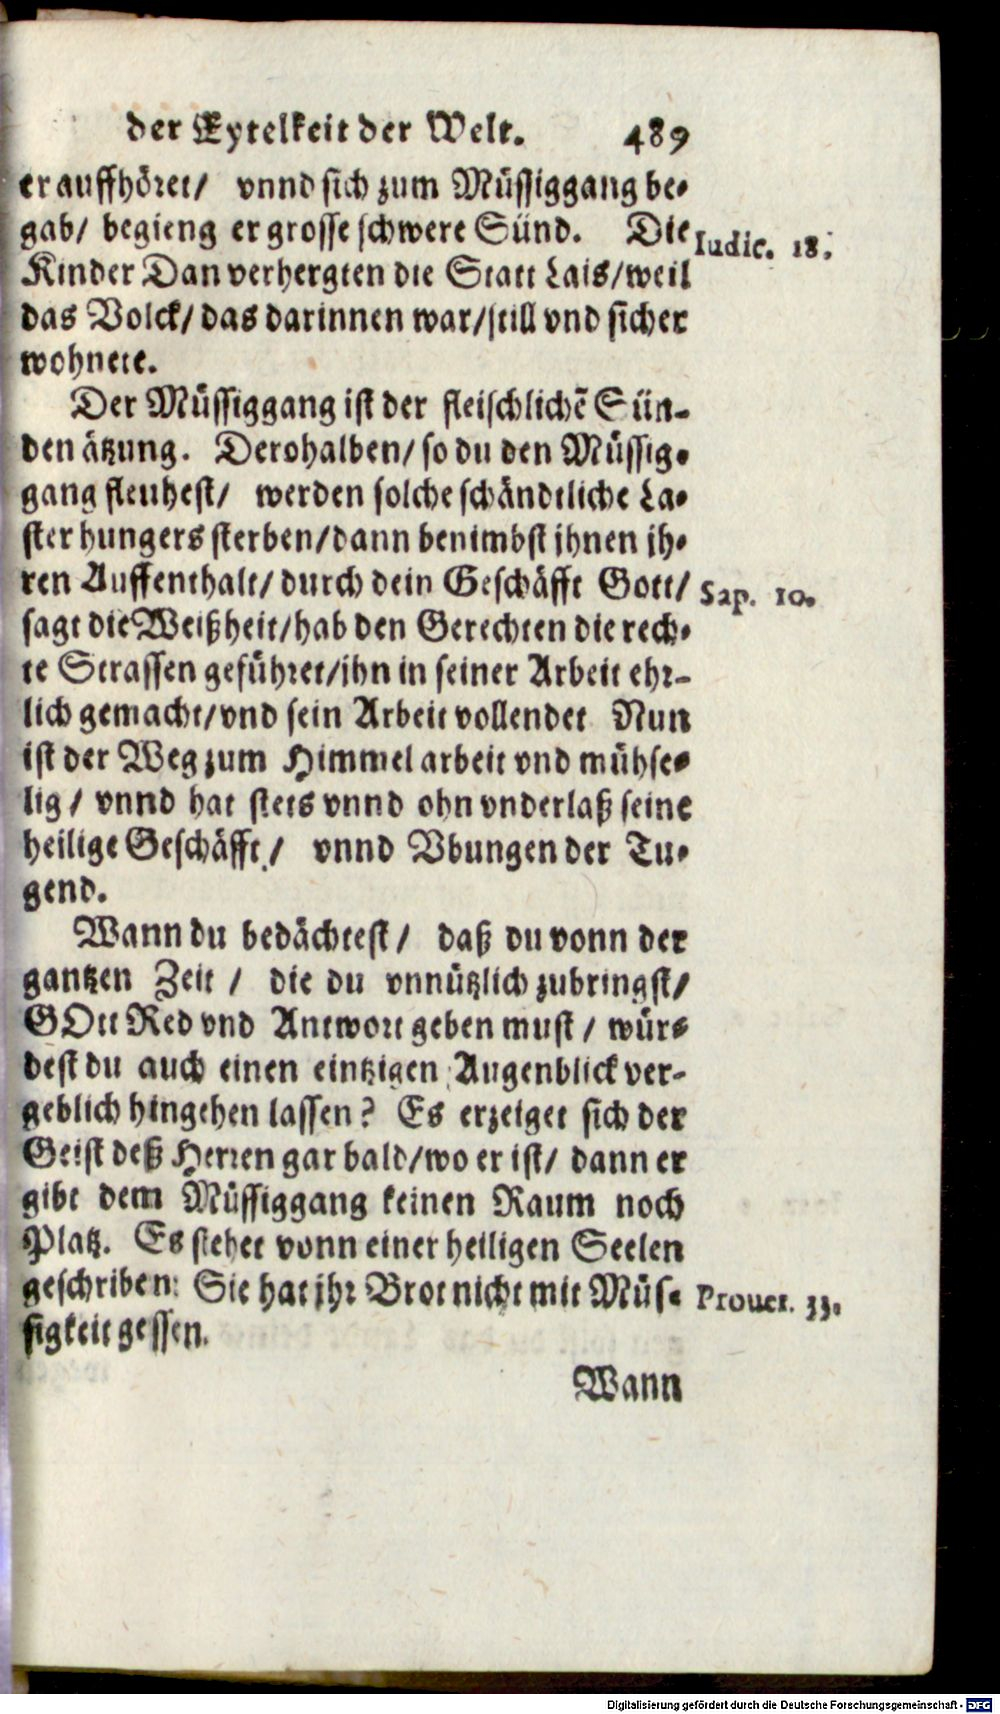 der Eytelkeit der Welt. 489
er auffhöret/ vnnd sich zum Müssiggang be-
gab/ begieng er grosse schwere Sünd. Die Iudic. 18.
Kinder Dan verhergten die Statt Lais/weil
das Volck/ das darinnen war/still vnd sicher
wohnete.
Der Müssiggang ist der fleischlichē Sün-
den ätzung. Derohalben/ so du den Müssig-
gang fleuhest/ werden solche schändtliche La-
ster hungers sterben/dann benimbst jhnen jh-
ren Auffenthalt/ durch dein Geschäfft Gott/ Sap. 10.
sagt die Weißheit/hab den Gerechten die rech-
te Strassen geführet/ihn in seiner Arbeit ehr-
lich gemacht/vnd sein Arbeit vollendet Nun
ist der Weg zum Himmel arbeit vnd mühse-
lig/ vnnd hat stets vnnd ohn vnderlaß seine
heilige Geschäfft/ vnnd Vbungen der Tu-
gend.
Wann du bedächtest/ daß du vonn der
gantzen Zeit/ die du vnnützlich zubringst/
GOtt Red vnd Antwort geben must/ wür-
dest du auch einen eintzigen Augenblick ver-
geblich hingehen lassen? Es erzeiget sich der
Geist deß Herren gar bald/wo er ist/ dann er
gibt dem Müssiggang keinen Raum noch
Platz. Es stehet vonn einer heiligen Seelen
geschriben: Sie hat jhr Brot nicht mit Müs- Prouer. 33.
sigkeit gessen.
Wann
Digitalisierung gefördert durch die Deutsche Forschungsgemeinschaft - DFG